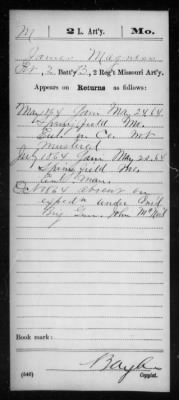 M | 2 L. Art'y. | Mo.
James Magness
Pvt, 2 Batt'y B, 2 Reg't Missouri Art'y.
Appears on
Returns as follows:
May 1864 Gain May 24 64
Springfield Mo.
Enl. in Co. not
mustered
July 1864 Gain May 24 64
Springfield Mo.
Enl.
Oct 1864 absent on
exped'n under
Brig Gen. John McNeil
Book mark:
(546)
Copyist.